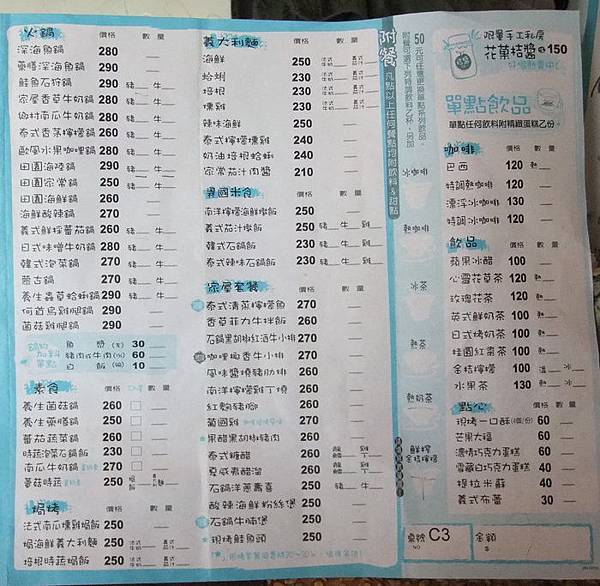 火鍋 價格 數量
深海魚鍋 280
藥膳深海魚鍋 290
鮭魚石狩鍋 290
家屋香草牛奶鍋 280 豬 牛
鄉村南瓜牛奶鍋 280
泰式香茅檸檬鍋 260
歐風水果咖哩鍋 280
田園海陸鍋 290 豬 牛
田園家常鍋 250 豬 牛
田園海鮮鍋 260
海鮮酸辣鍋 270
義式鮮採蕃茄鍋 260 豬 牛
日式味噌牛奶鍋 280 豬 牛
韓式泡菜鍋 270 豬 牛
蒙古鍋 270
養生蟲草蛤蜊鍋 290
何首烏雞腿鍋 290
菌菇雞腿鍋 290
鍋物加料單點
魚漿 30
豬肉或牛肉 60
白飯 10
素食 價格 數量
養生菌菇鍋 260
養生藥膳鍋 250
蕃茄蔬菜鍋 260
時蔬泡菜石鍋飯 230
南瓜牛奶鍋 260
蘑菇時蔬 250
焗烤 價格 數量
法式南瓜燻雞焗飯 250
焗海鮮義大利麵 250
培根時蔬焗飯 250
義大利麵 價格 數量
海鮮 250
蛤蜊 230
培根 230
燻雞 230
辣味海鮮 250
泰式檸檬燻雞 240
奶油培根蛤蜊 240
家常茄汁肉醬 210
異國米食 價格 數量
南洋檸檬海鮮燉飯 250
義式茄汁燉飯 250 豬 牛 雞
韓式石鍋飯 230 豬 牛 雞
泰式辣味石鍋飯 230 豬 牛 雞
家屋套餐 價格 數量
泰式清蒸檸檬魚 270
香草菲力牛拌飯 280
石鍋黑胡椒紅酒牛小排 270
咖哩椰香牛小排 270
風味醬燒豬肋排 260
南洋檸檬雞丁燒 260
紅麴豬腳 260
葡國雞 260
果醋黑胡椒豬肉 260
泰式糖醋 260
夏威夷醋溜 260
石鍋洋蔥壽喜 250 豬 牛
酸辣海鮮粉絲煲 250
石鍋牛腩煲 250
現烤鮭魚頭 250
附餐 凡點以上任何餐點均附飲料&甜點
熱咖啡
冰茶
熱茶
熱奶茶
鮮榨金桔檸檬
限量手工私房
花菓桔醬 150
單點飲品
單點任何飲料附精緻蛋糕乙份。
咖啡 價格 數量
巴西 120 熱
特調熱咖啡 120
漂浮冰咖啡 130
特調冰咖啡 120
飲品 價格 數量
蘋果冰醋 100
心靈花草茶 120 熱
玫瑰花茶 120 熱
英式鮮奶茶 100
日式烤奶茶 100
桂圓紅棗茶 100
金桔檸檬 100 溫 冰
水果茶 130 熱 冰
點心 價格 數量
現烤一口酥 60
芒果大福 60
濃情巧克力蛋糕 60
雪藏白巧克力蛋糕 40
提拉米蘇 40
義式布蕾 30
桌號 NO C3
金額 $